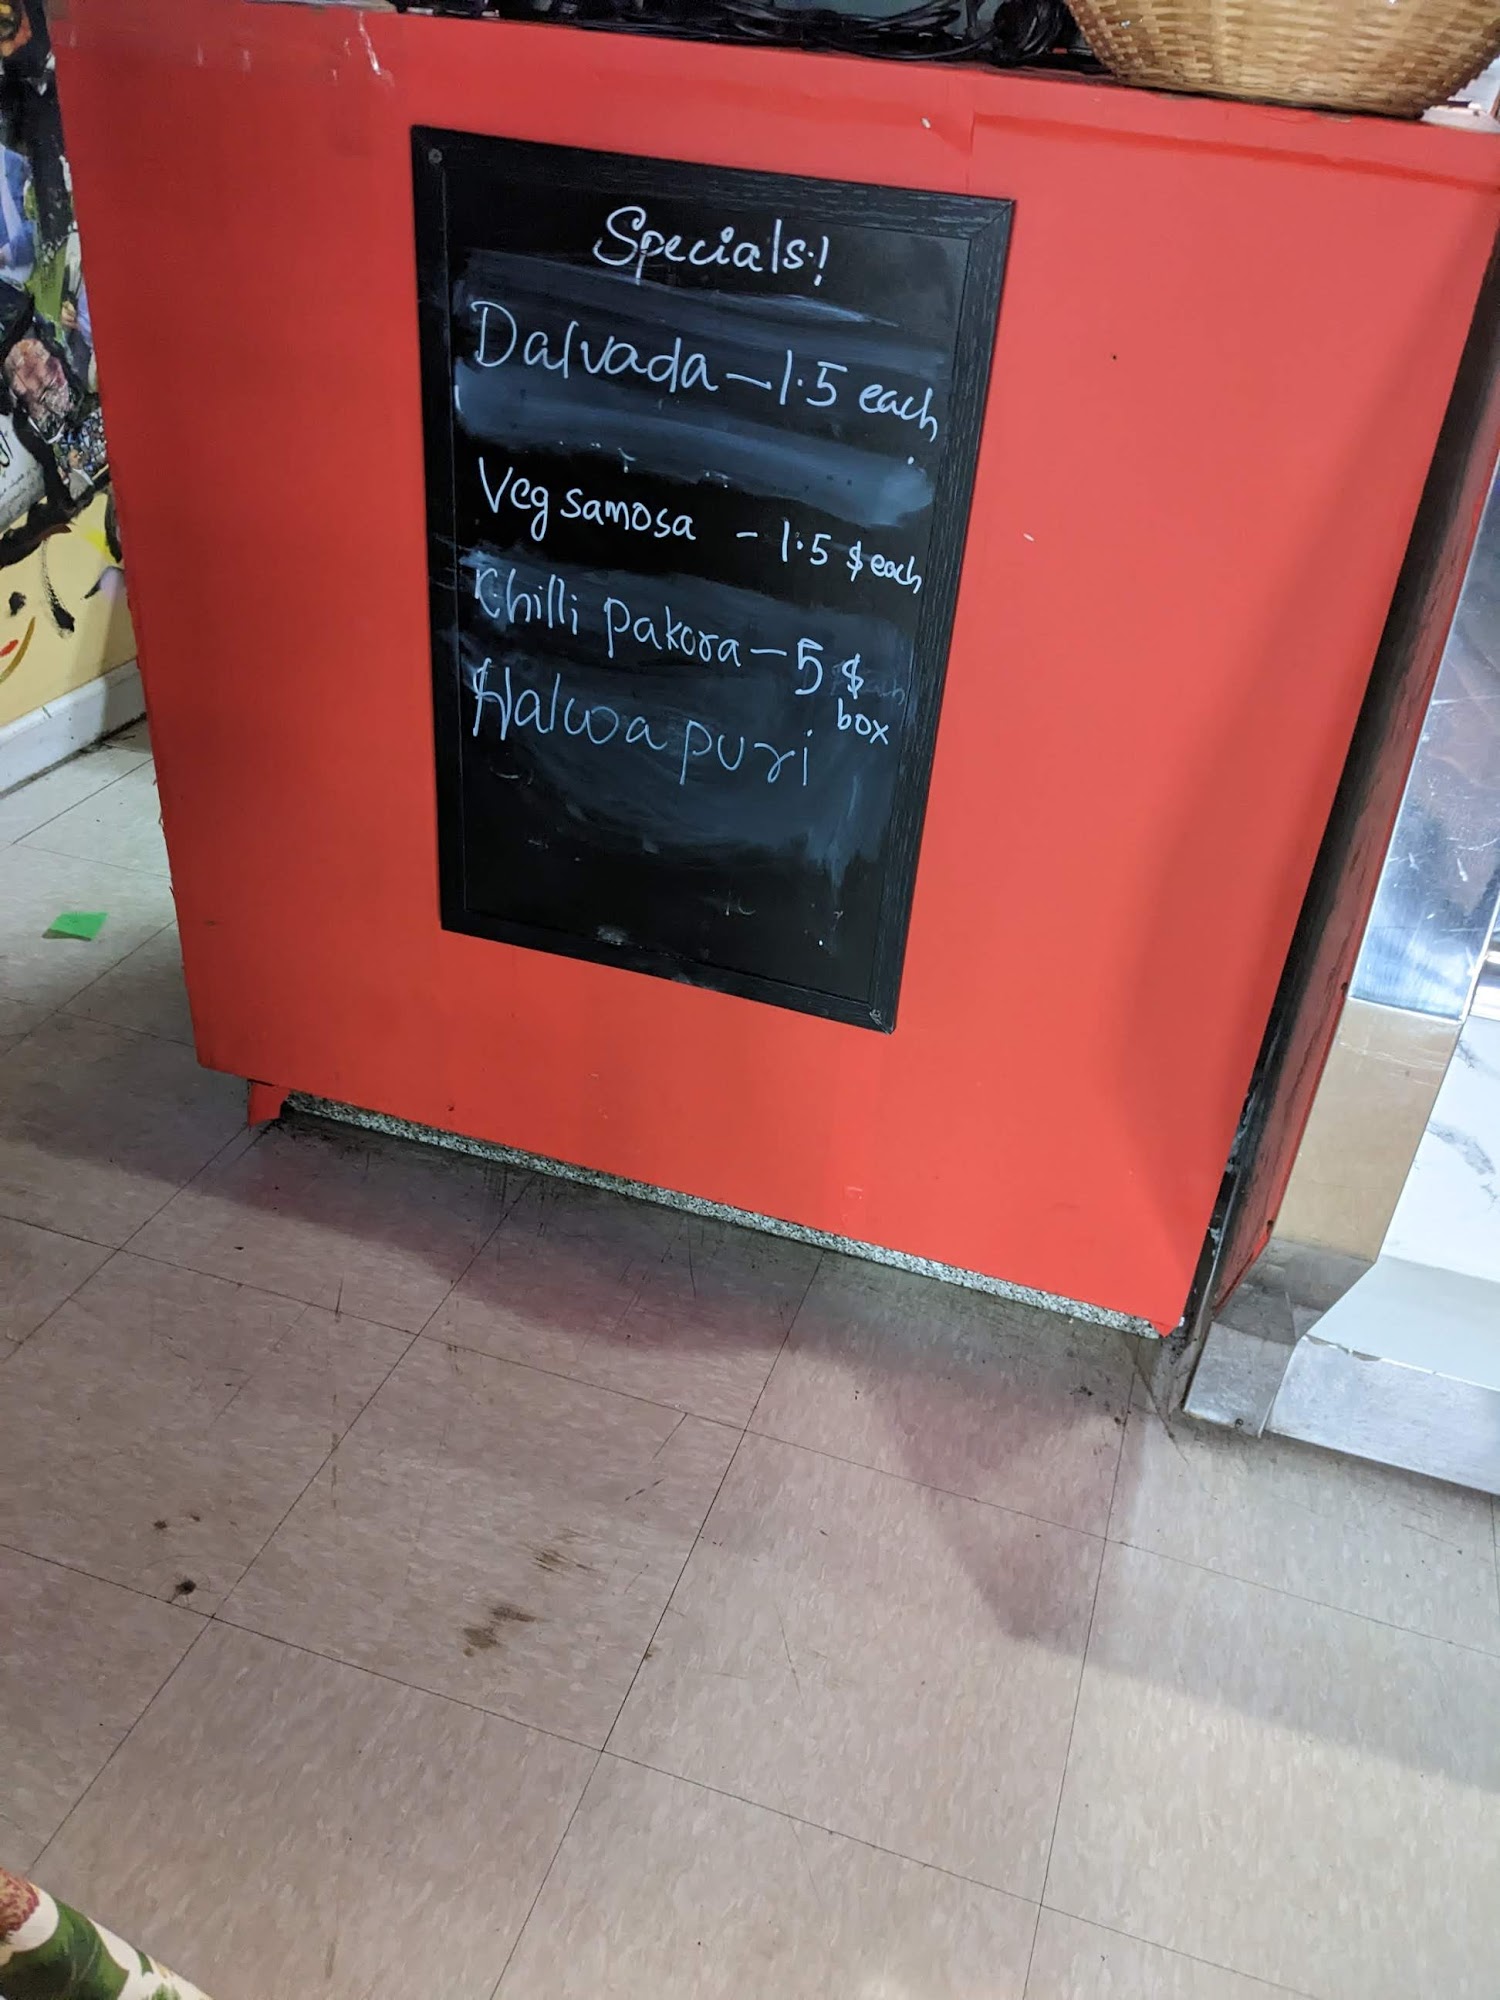 Specials!
Dalvada - 1.5 each
Veg samosa - 1.5 $ each
Chilli pakora - 5 $
box
Halwa puri